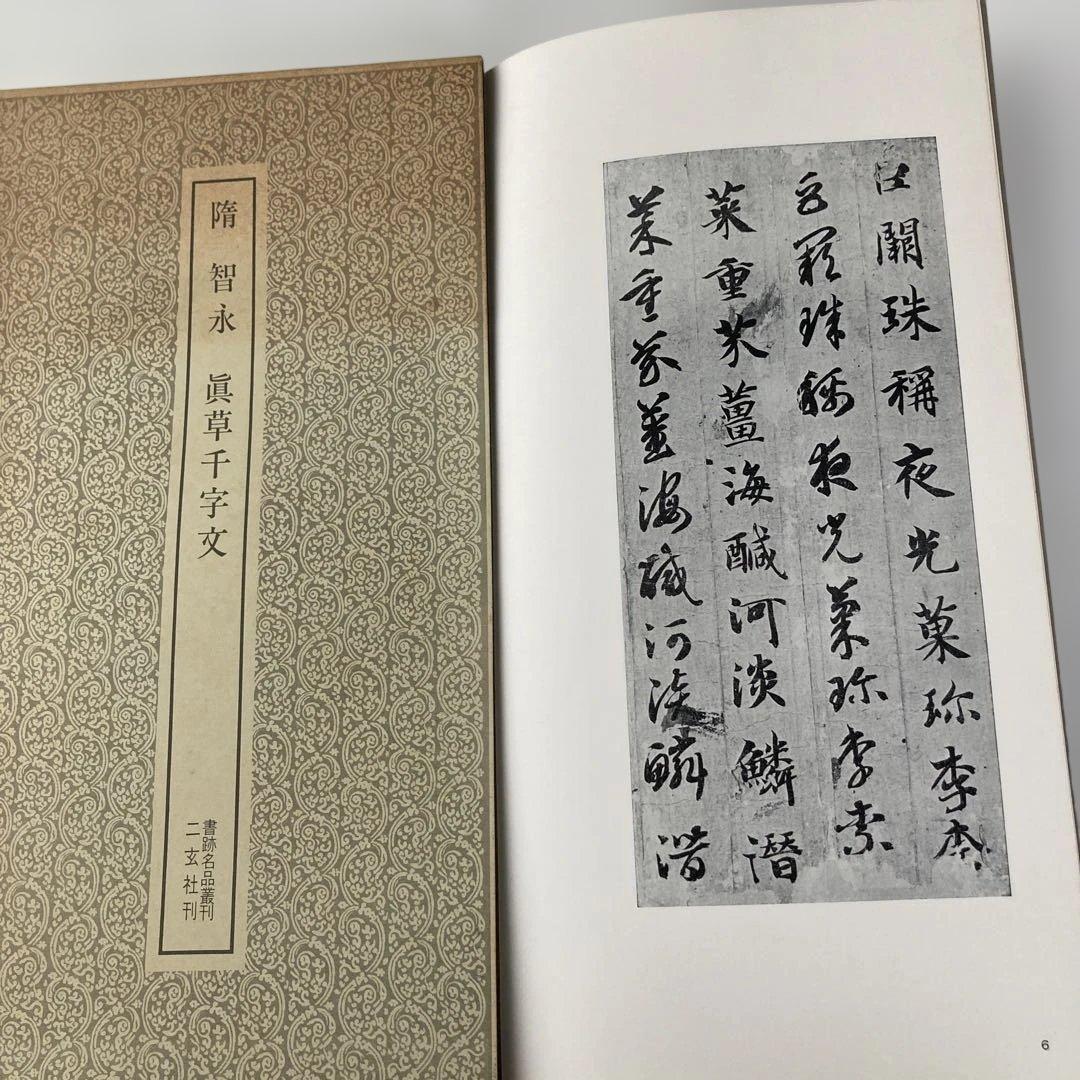 隋 智永 眞草千字文
書跡名品叢刊
二玄社刊
巨闕珠稱夜光菓珎李柰
巨闕珠稱夜光菓珎李柰
菜重芥薑海醎河淡鱗潛
菜重芥薑海醎河淡鱗潛
6